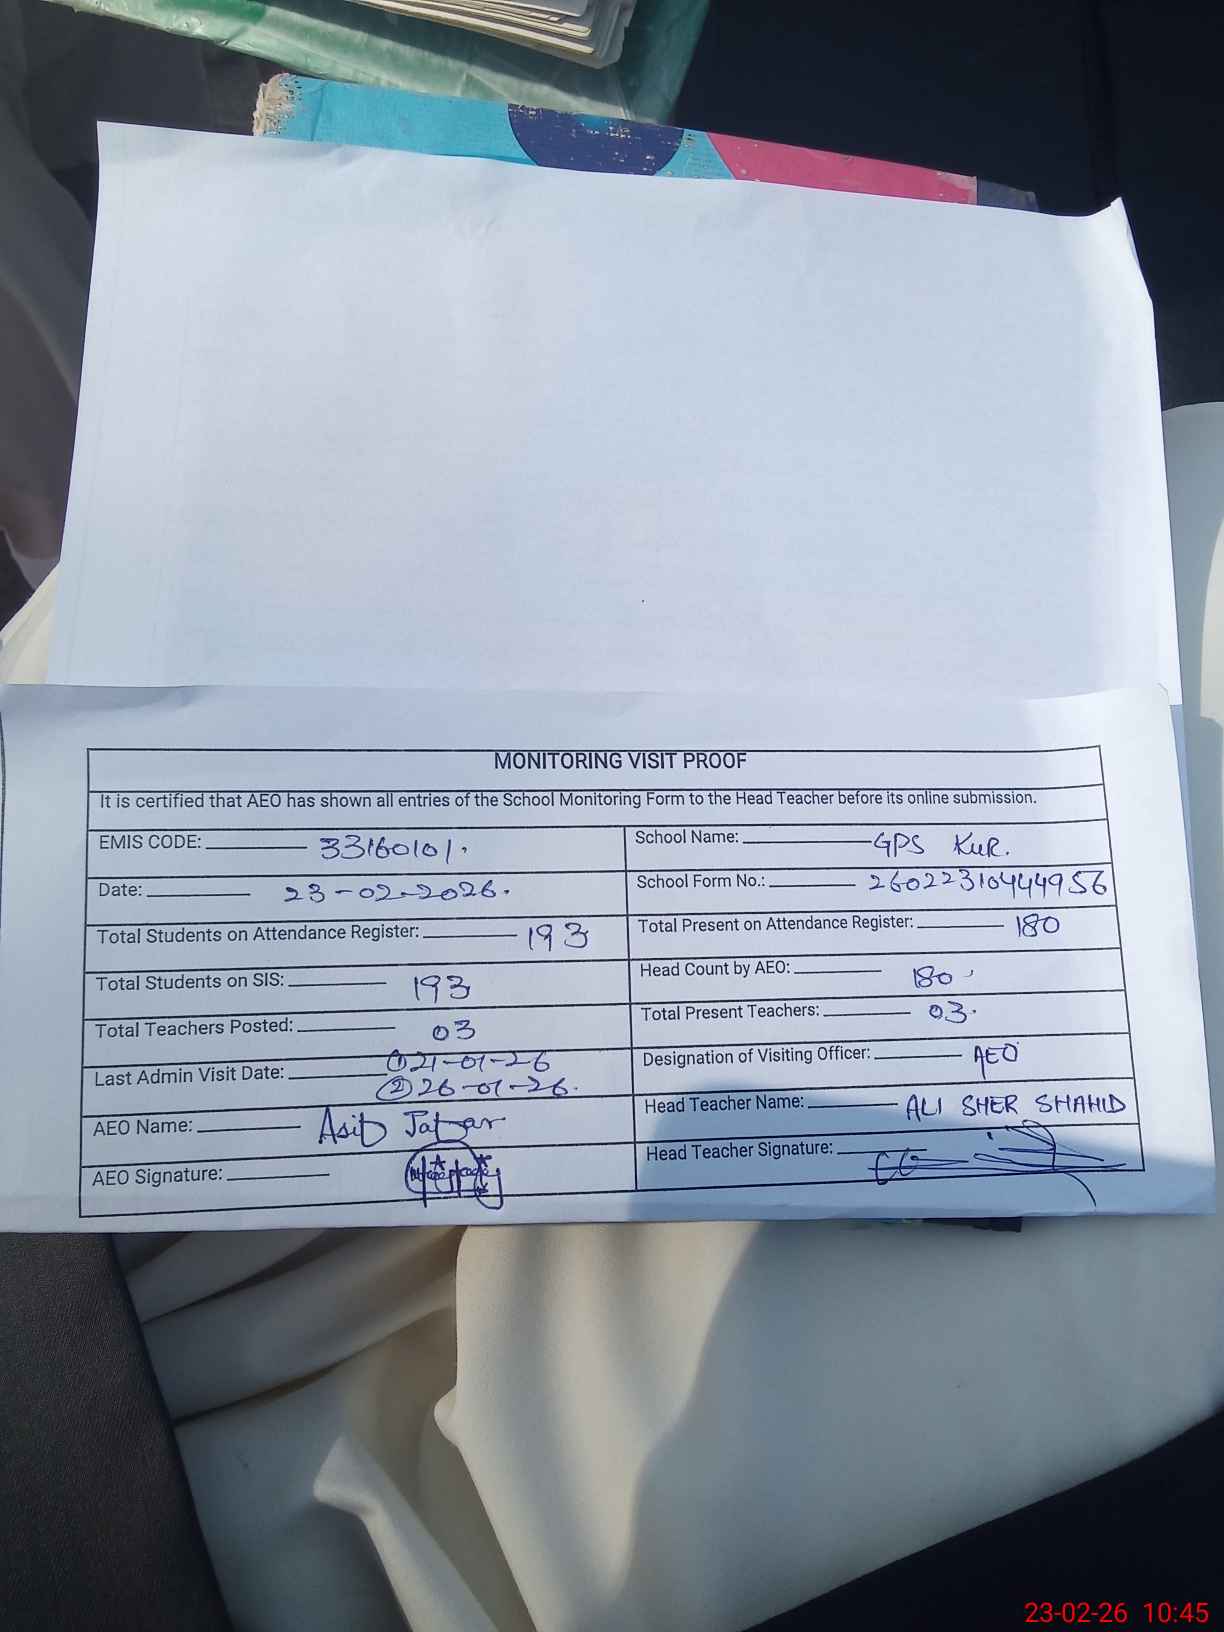 MONITORING VISIT PROOF
It is certified that AEO has shown all entries of the School Monitoring Form to the Head Teacher before its online submission.
EMIS CODE: 33160101.
School Name: GPS KUR.
Date: 23-02-2026.
School Form No.: 26022310444956
Total Students on Attendance Register: 193
Total Present on Attendance Register: 180
Total Students on SIS: 193
Head Count by AEO: 180
Total Teachers Posted: 03
Total Present Teachers: 03.
Last Admin Visit Date: ① 21-01-26
② 26-01-26.
Designation of Visiting Officer: AEO
AEO Name: Asif
Head Teacher Name: ALI SHER SHAHID
AEO Signature:
Head Teacher Signature:
23-02-26 10:45